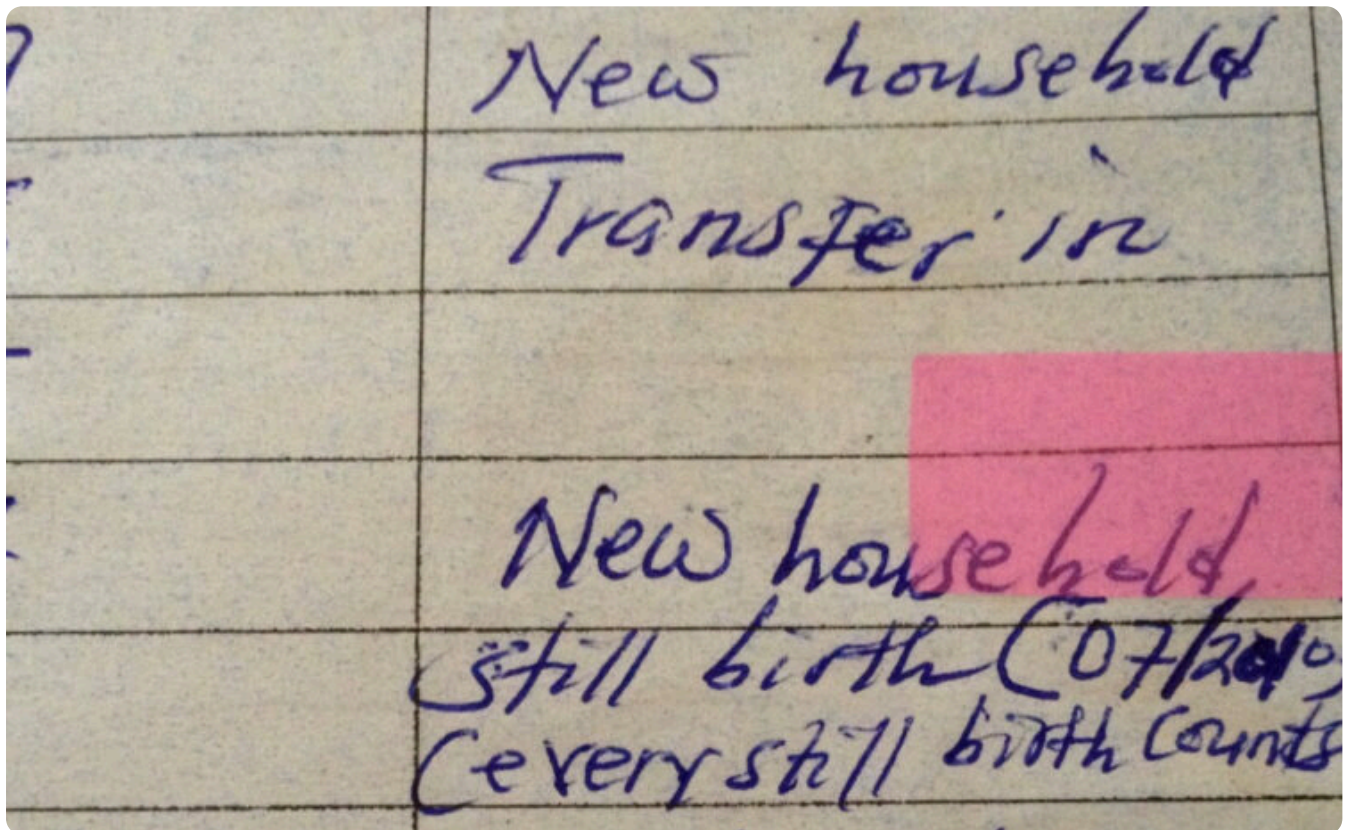 New household
Transfer in
New household,
still birth (07/2010)
(every still birth counts